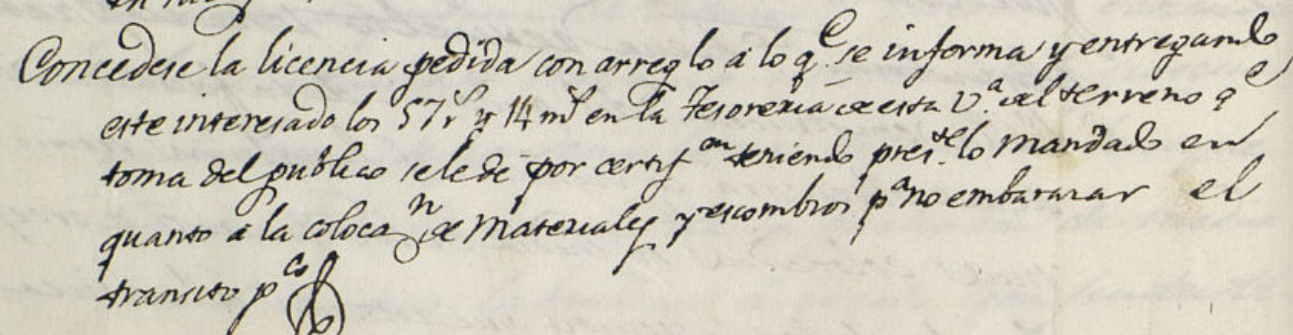 Concedese la licencia pedida con arreglo a lo q.e se informa y entregando
este interesado los 57 r.s y 14 m.s en la Tesoreria de esta V.a del terreno q.e
toma del publico se le dé por certif.on teniendo pres.te lo mandado en
quanto á la coloca.n de Materiales y escombros p.a no embarazar el
transito p.co